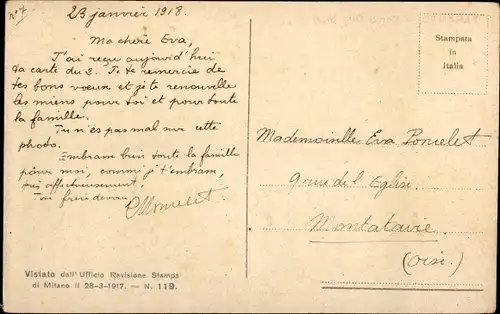 n° 7
23 janvier 1918.
Ma chère Eva,
J'ai reçu aujourd'hui
ta carte du 2. Je te remercie de
tes bons voeux et je te renouvelle
les miens pour toi et pour toute
la famille.
Tu n'es pas mal sur cette
photo.
Embrasse bien toute la famille
pour moi, comme je t'embrasse,
très affectueusement.
Ton frère
Stampata
in
Italia
Mademoiselle Eva Pomelet
9 rue de l'Eglise
Montataire
(Oise.)
Visiato dall'Ufficio Revisione Stampa
di Milano il 28-3-1917. — N. 119.